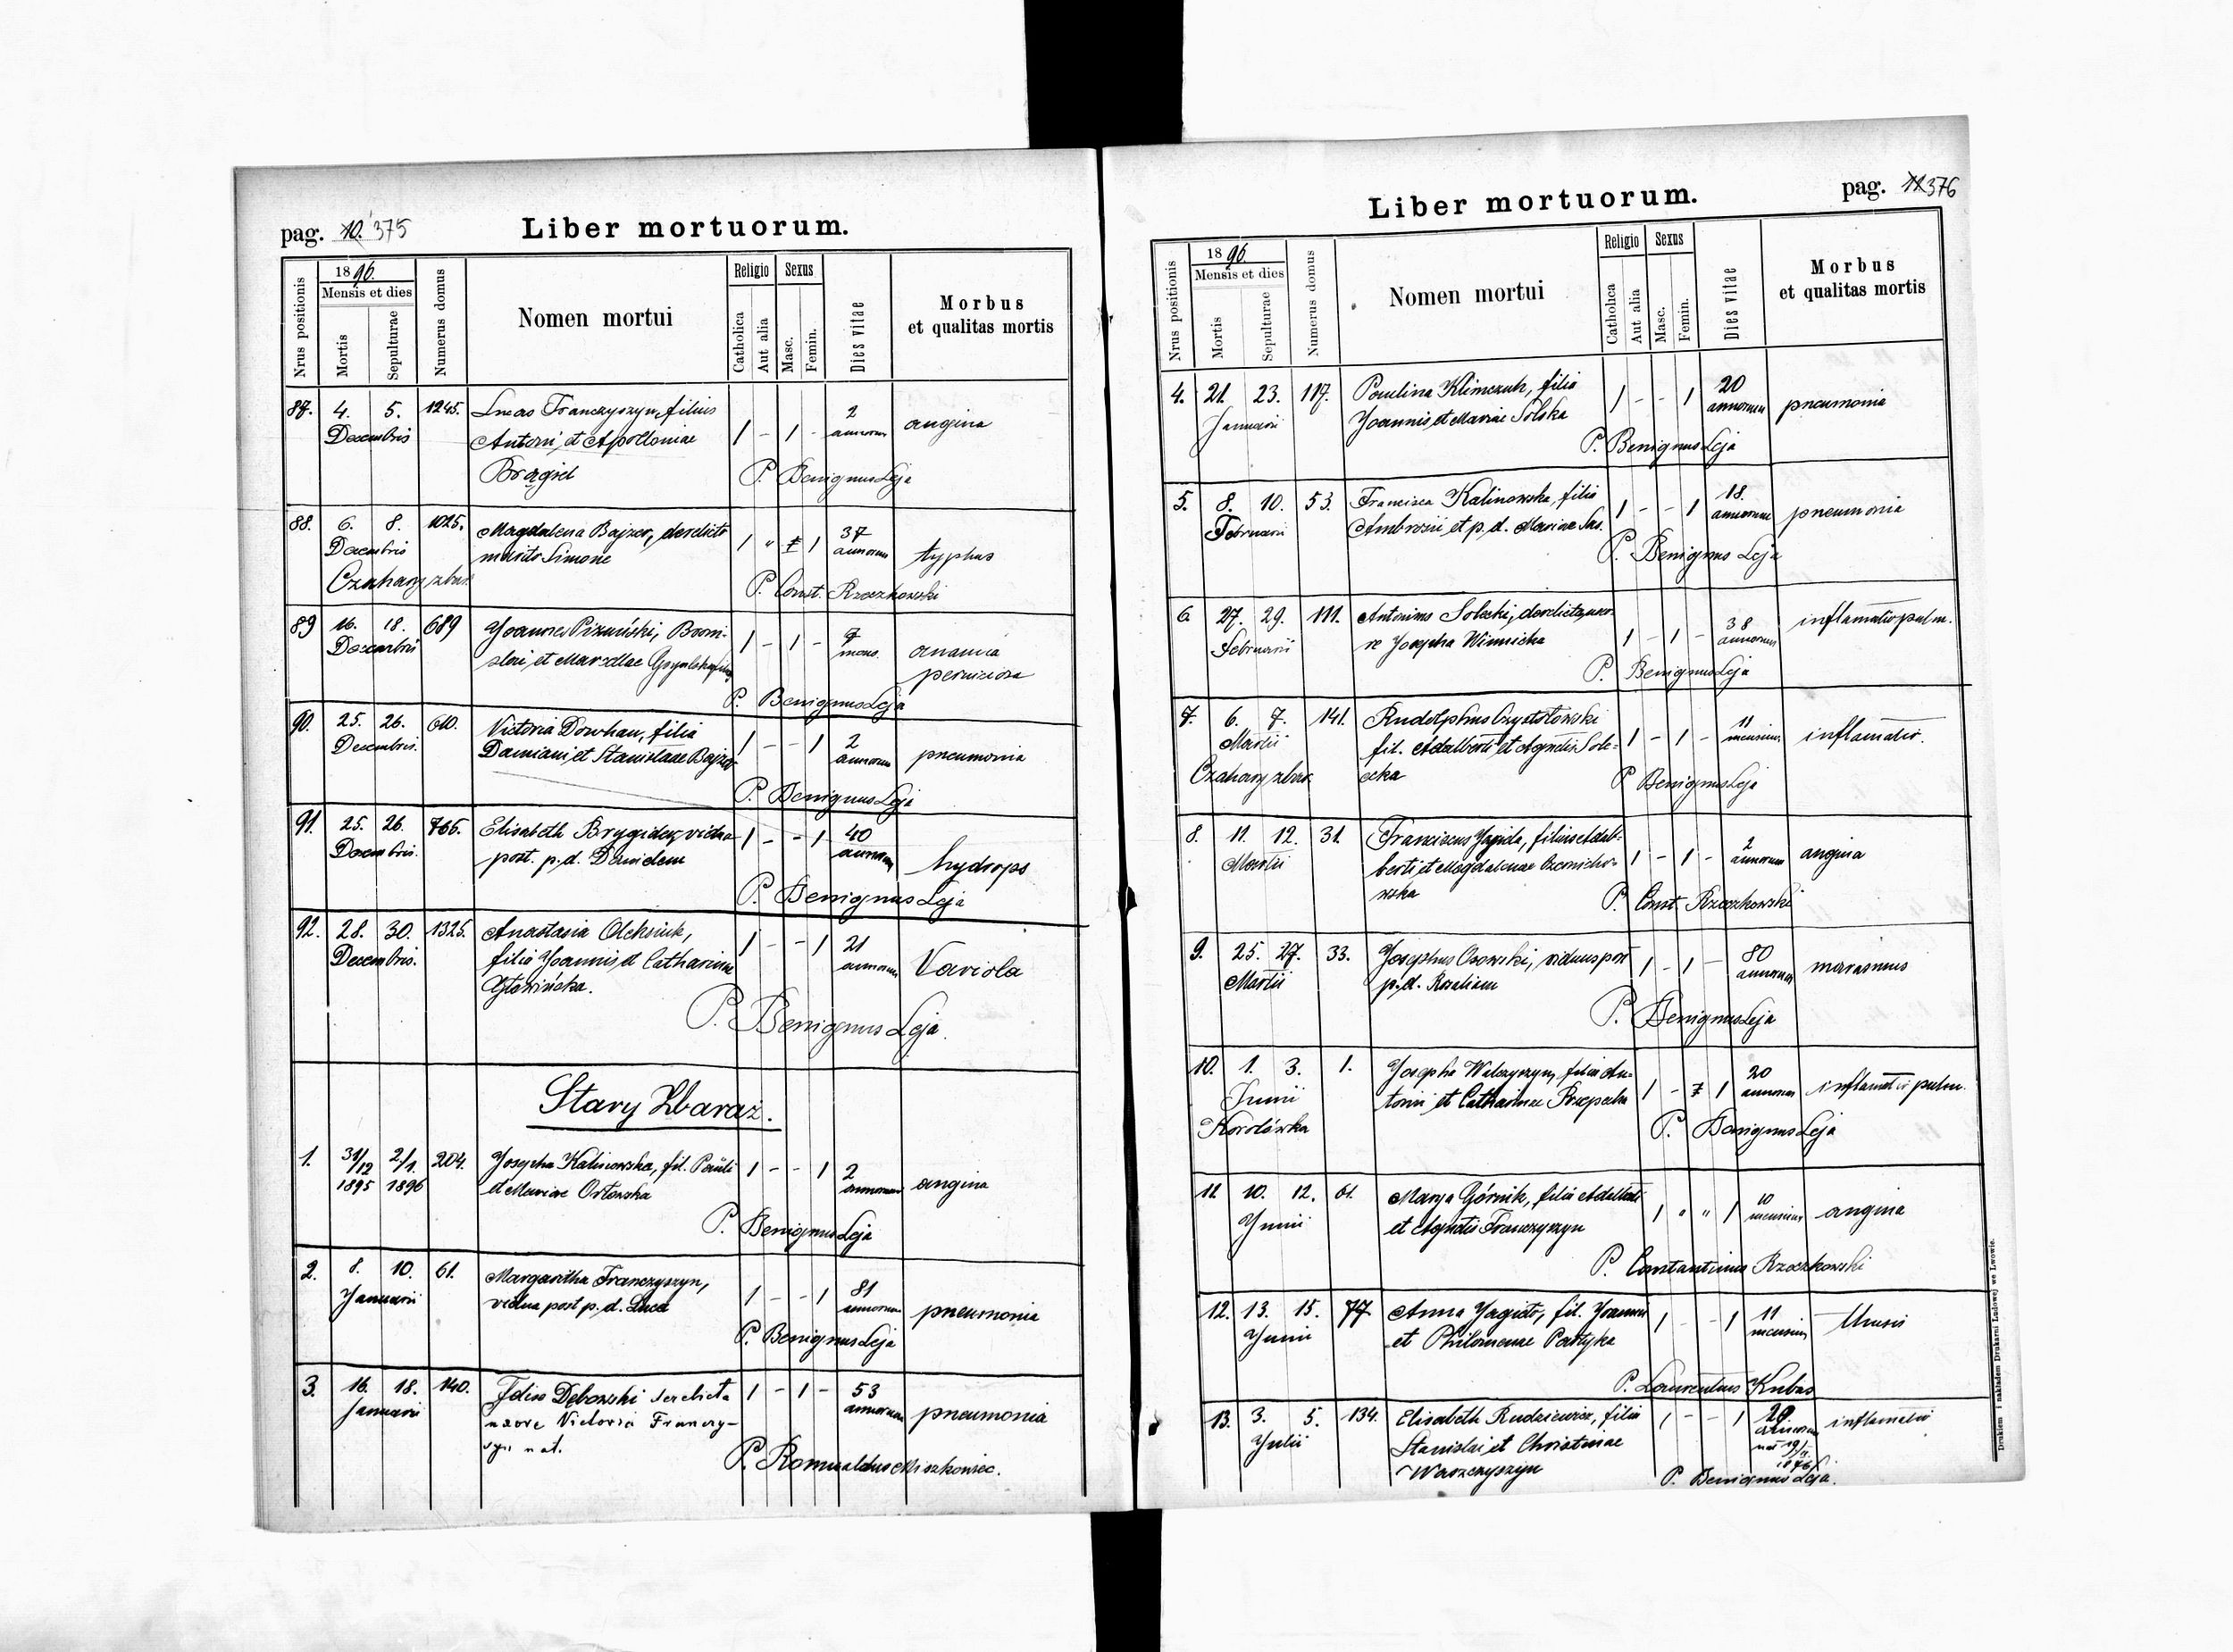 pag. 10. 375
Liber mortuorum.
Nrus positionis
1896.
Mensis et dies
Mortis
Sepulturae
Numerus domus
Nomen mortui
Religio
Catholica
Aut alia
Sexus
Masc.
Femin.
Dies vitae
Morbus
et qualitas mortis
87. 4. 5. 1245. Lucas Franczyszyn, filius 2
Decembris Antoni, et Apolloniae 1 - 1 - annorum angina
Brągiel P. Benignus Leja
88. 6. 8. 1025. Magdalena Bajzer, derelicto 1 " 1 37
Decembris marito Simone annorum typhus
Czahary zbar. P. Const. Rzeczkowski
89 16. 18. 689 Joannes Pizuński, Broni- 1 - 1 - 7
Decembris slai, et Marcellae mens. anaemia
perniciosa
P. Benignus Leja
90. 25. 26. 610. Victoria Dowhan, filia 1 - - 1 2
Decembris. Damiani, et Stanislaae Bajzer annorum pneumonia
P. Benignus Leja
91. 25. 26. 766. Elisabeth Brygider, vidua 1 - - 1 40
Decembris. post. p. d. Danielem annorum hydrops
P. Benignus Leja
92. 28. 30. 1325. Anastasia Oleksiuk, 1 - - 1 21
Decembris. filia Joannis, et Catharinae annorum Variola
Głowińska.
P. Benignus Leja.
Stary Zbaraż.
1. 31/12 2/1. 204. Josepha Kalinowska, fil. Pauli 1 - - 1 2
1895 1896 et Mariae Orłowska annorum angina
P. Benignus Leja
2. 8. 10. 61. Margaritha Franczyszyn, 1 - - 1 81
Januarii vidua post p. d. Luca annorum pneumonia
P. Benignus Leja
3. 16. 18. 140. Felix Dębowski derelicta 1 - 1 - 53
Januarii uxore Victoria Franczy- annorum pneumonia
szyn nat.
P. Romualdus Miszkowiec.
Liber mortuorum.
pag. 11 376
Nrus positionis
1896
Mensis et dies
Mortis
Sepulturae
Numerus domus
Nomen mortui
Religio
Catholica
Aut alia
Sexus
Masc.
Femin.
Dies vitae
Morbus
et qualitas mortis
4. 21. 23. 117. Paulina Klimczuk, filia 1 - - 1 20
Januarii Joannis et Mariae Solska annorum pneumonia
P. Benignus Leja
5. 8. 10. 53. Francisca Kalinowska, filia 1 - - 1 18.
Februarii Ambrosii et p. d. Mariae Sas. annorum pneumonia
P. Benignus Leja
6 27. 29. 111. Antonius Solecki, derelicta uxo- 1 - 1 - 38 inflamatio pulm.
Februarii re Josepha Winnicka annorum
P. Benignus Leja
7. 6. 7. 141. Rudolphus Czystołowski 1 - 1 - 11
Martii fil. Adalberti et Agnetis Sole- mensium inflamatio.
Czahary zbar. ecka P Benignus Leja
8. 11. 12. 31. Franciscus Jagida, filius Adal- 1 - 1 - 2
Martii berti, et Magdalenae annorum angina
wska P. Const. Rzeczkowski
9. 25. 27. 33. Josephus Osowski, viduus post 1 - 1 - 80
Martii p. d. Rosaliam annorum marasmus
P. Benignus Leja
10. 1. 3. 1. Josepha Walczyszyn, filia An- 1 - 1 20
Junii tonii et Catharinae Rzepecka annorum inflamatio pulm.
Korolówka P. Benignus Leja
11. 10. 12. 61. Marya Górnik, filia Adalberti 1 " " 1 10
Junii et Agnetis Franczyszyn mensium angina
P. Constantinus Rzeczkowski
12. 13. 15. 77. Anna Jagido, fil. Joannis 1 - - 1 11
Junii et Philomenae Partyka mensium
P. Laurentius Kubas
13. 3. 5. 134. Elisabeth Rudziewicz, filia 1 - - 1 inflamatio
Julii Stanislai et Christinae annorum
Warzczyszyn nat 19/
P. Benignus Leja.
Drukiem i nakładem Drukarni Ludowej we Lwowie.